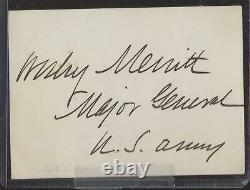 Wesley Merritt
Major General
U. S. Army
ebay.com